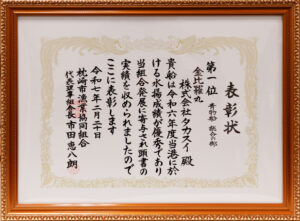 表彰状
第一位 青物船 総合の部
金比羅丸
株式会社タカスイ 殿
貴船は令和六年度当港に於
ける水揚成績が優秀であり
当組合発展に寄与され頭書の
実績を収められましたので
ここに表彰します
令和七年二月二十日
枕崎市漁業協同組合
代表理事組合長 市田恵八朗